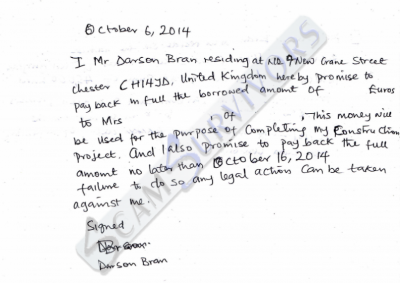 October 6, 2014
I Mr Darson Bran residing at No 9 New Crane Street
chester CH14JD, United Kingdom hereby promise to
pay back in full the borrowed amount of Euros
to Mrs of , This money will
be used for the purpose of completing my Construction
Project. And I also promise to pay back the full
amount no later than October 16, 2014
failure to do so any legal action can be taken
against me.
Signed
Darson Bran
SCAM SURVIVORS